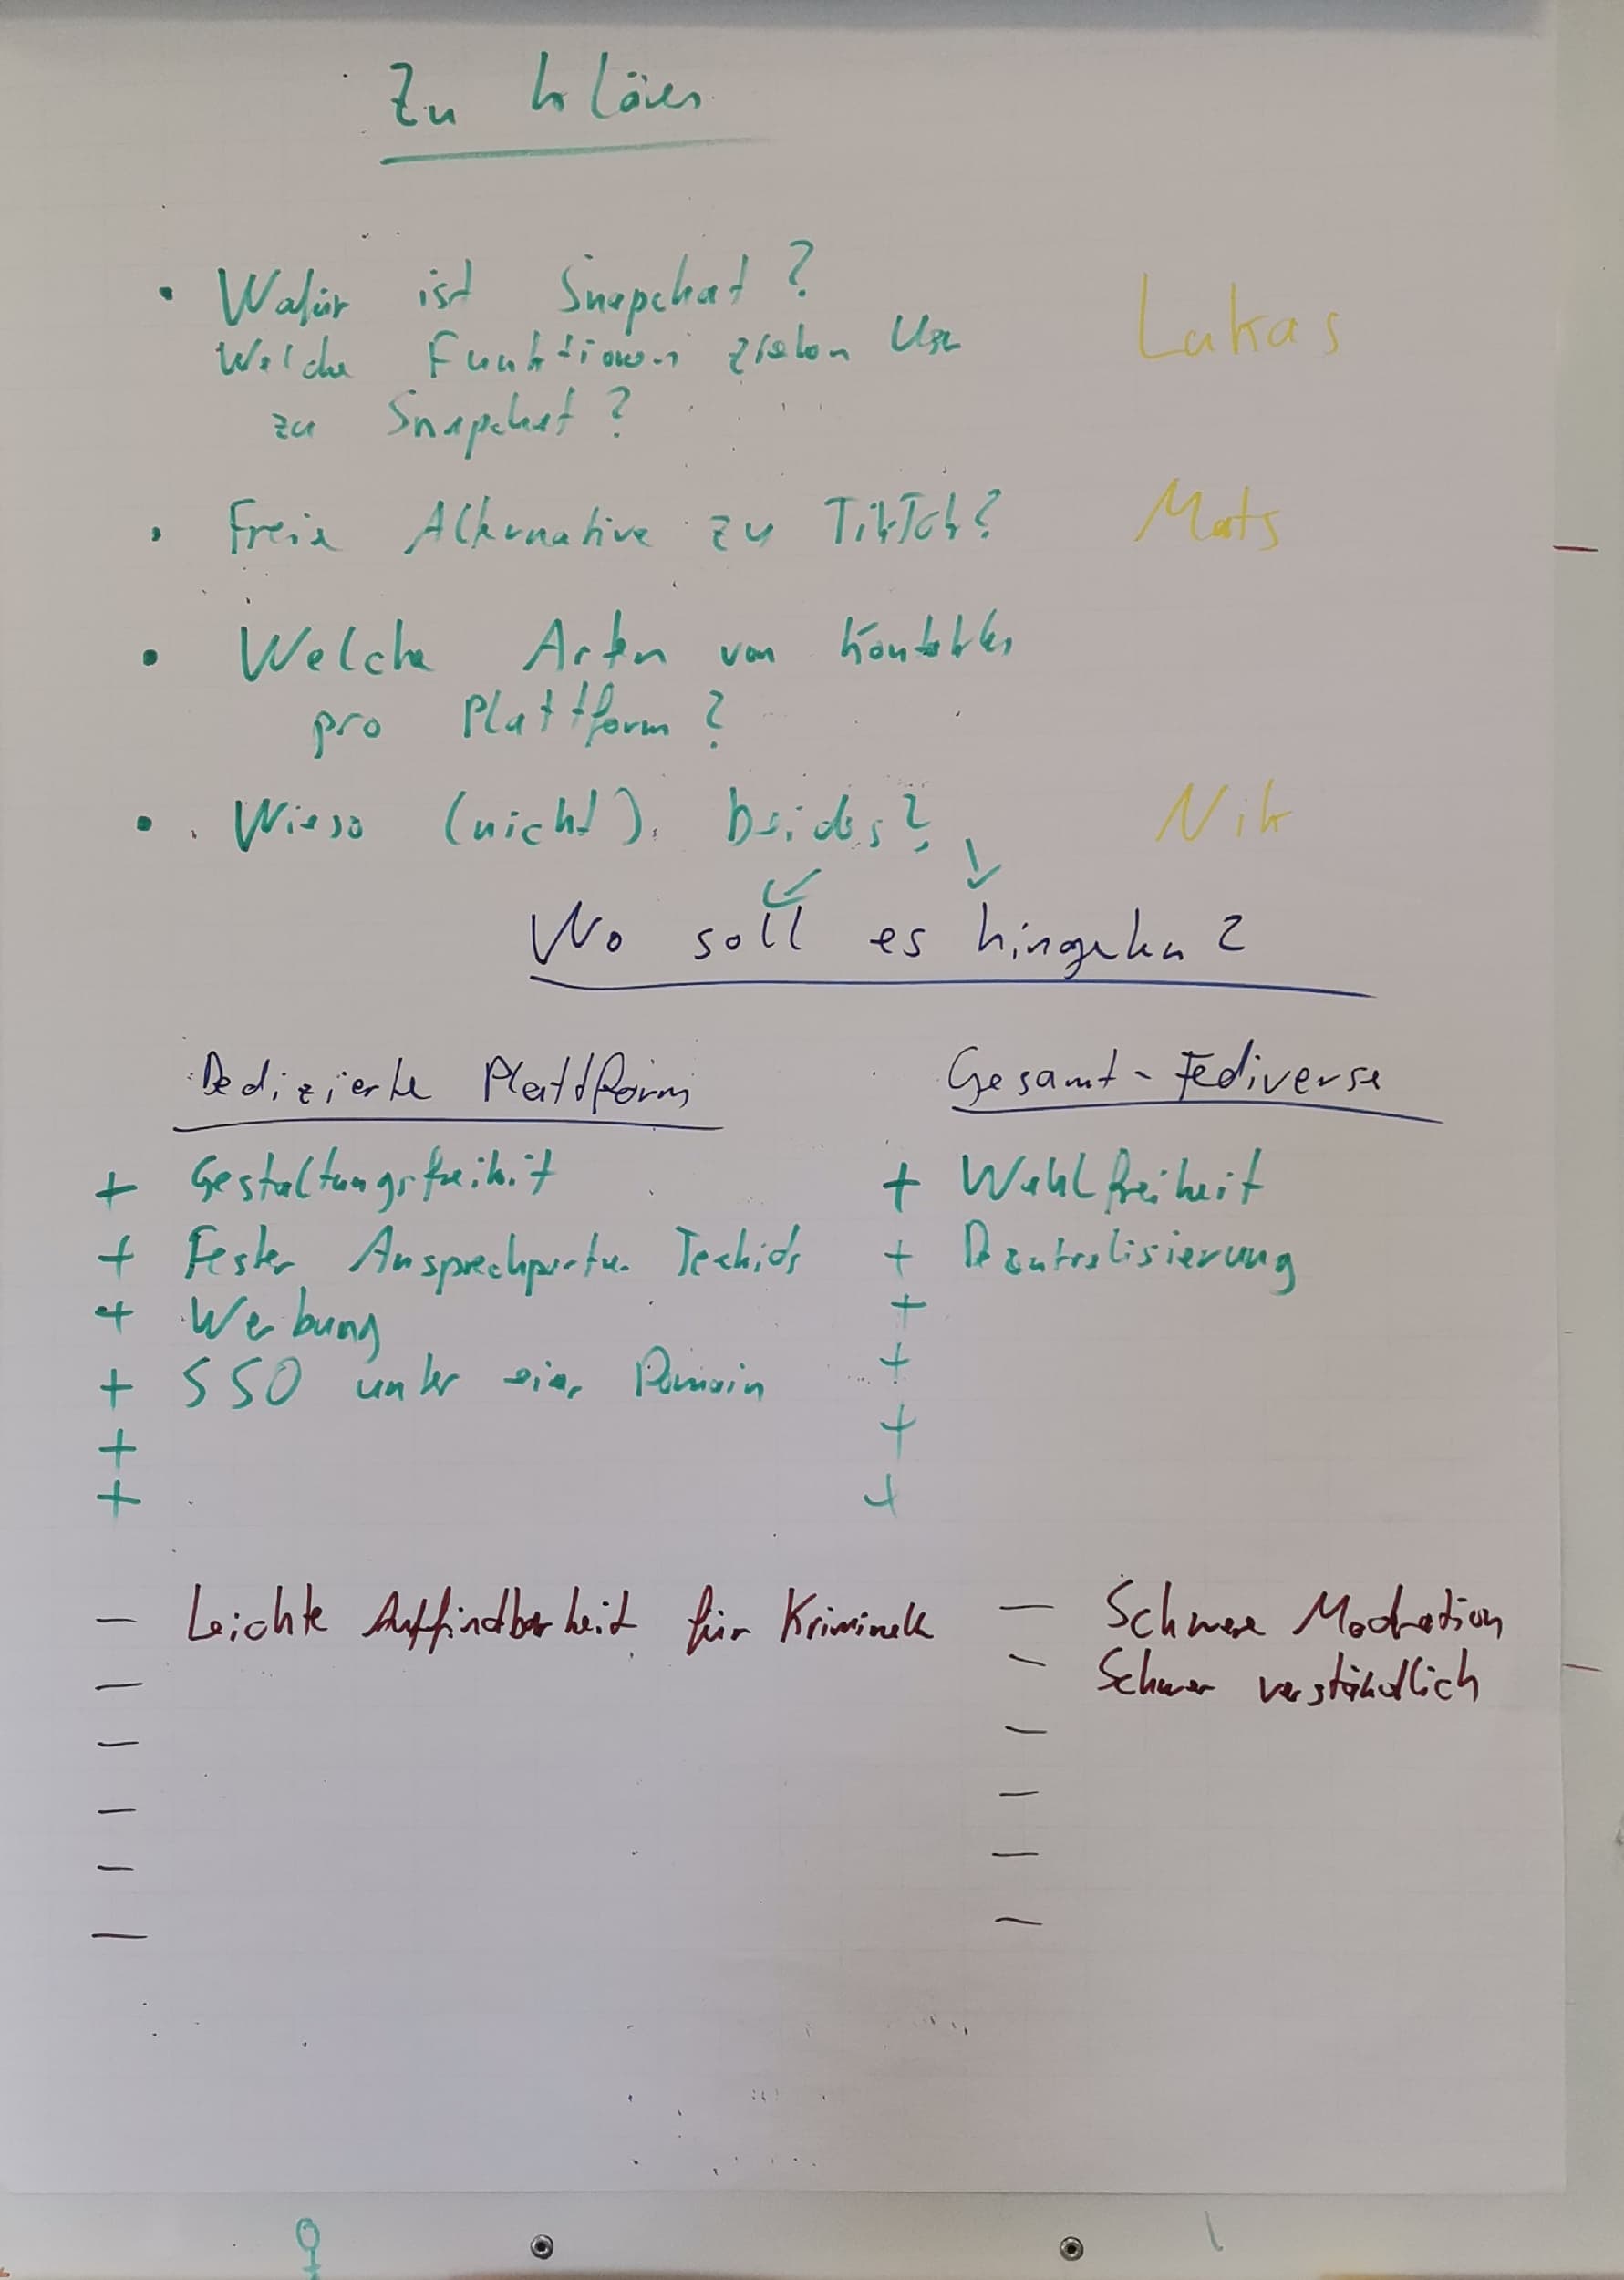 Zu klären
• Wofür ist Snapchat? Lukas
Welche Funktionen ziehen User
zu Snapchat?
• Freie Alternative zu TikTok? Mats
• Welche Arten von Kontakten
pro Plattform?
• Wieso (nicht) beides? Nik
Wo soll es hingehen?
Dedizierte Plattform
+ Gestaltungsfreiheit
+ Fester Ansprechpartner Teckids
+ Werbung
+ SSO unter einer Domain
+
+
Gesamt-Fediverse
+ Wahlfreiheit
+ Dezentralisierung
+
+
+
+
– Leichte Auffindbarkeit für Kriminelle
–
–
–
–
–
– Schwere Moderation
– Schwer verständlich
–
–
–
–